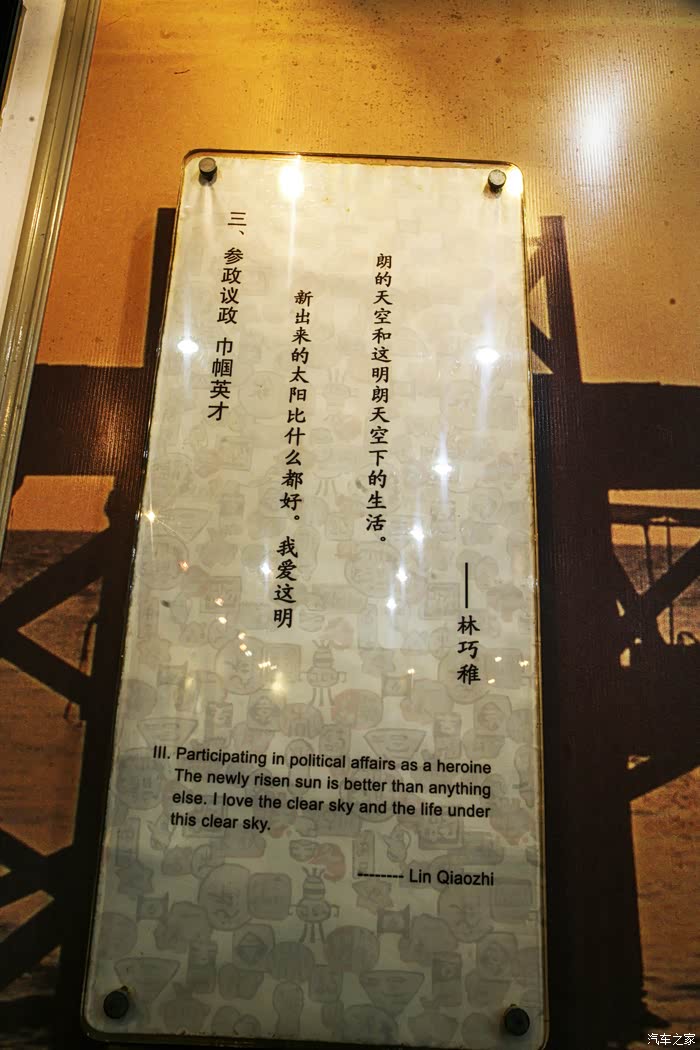 三、参政议政 巾帼英才
新出来的太阳比什么都好。我爱这明
朗的天空和这明朗天空下的生活。
——林巧稚
III. Participating in political affairs as a heroine
The newly risen sun is better than anything
else. I love the clear sky and the life under
this clear sky.
-------- Lin Qiaozhi
汽车之家